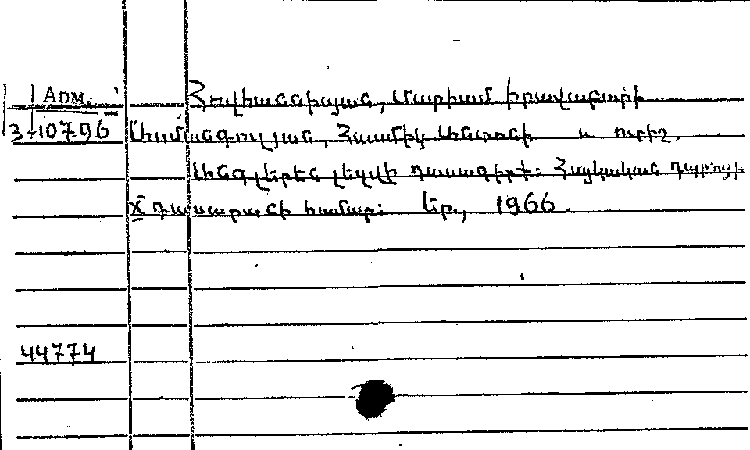 Арм.
3-10796
Հովհաննիսյան, Մարիամ
Ամանգուլյան, Հասմիկ և ուրիշ.
Անգլերեն լեզվի դասագիրք: Հայկական դպրոցի
X դասարանի համար: Եր., 1966.
44774